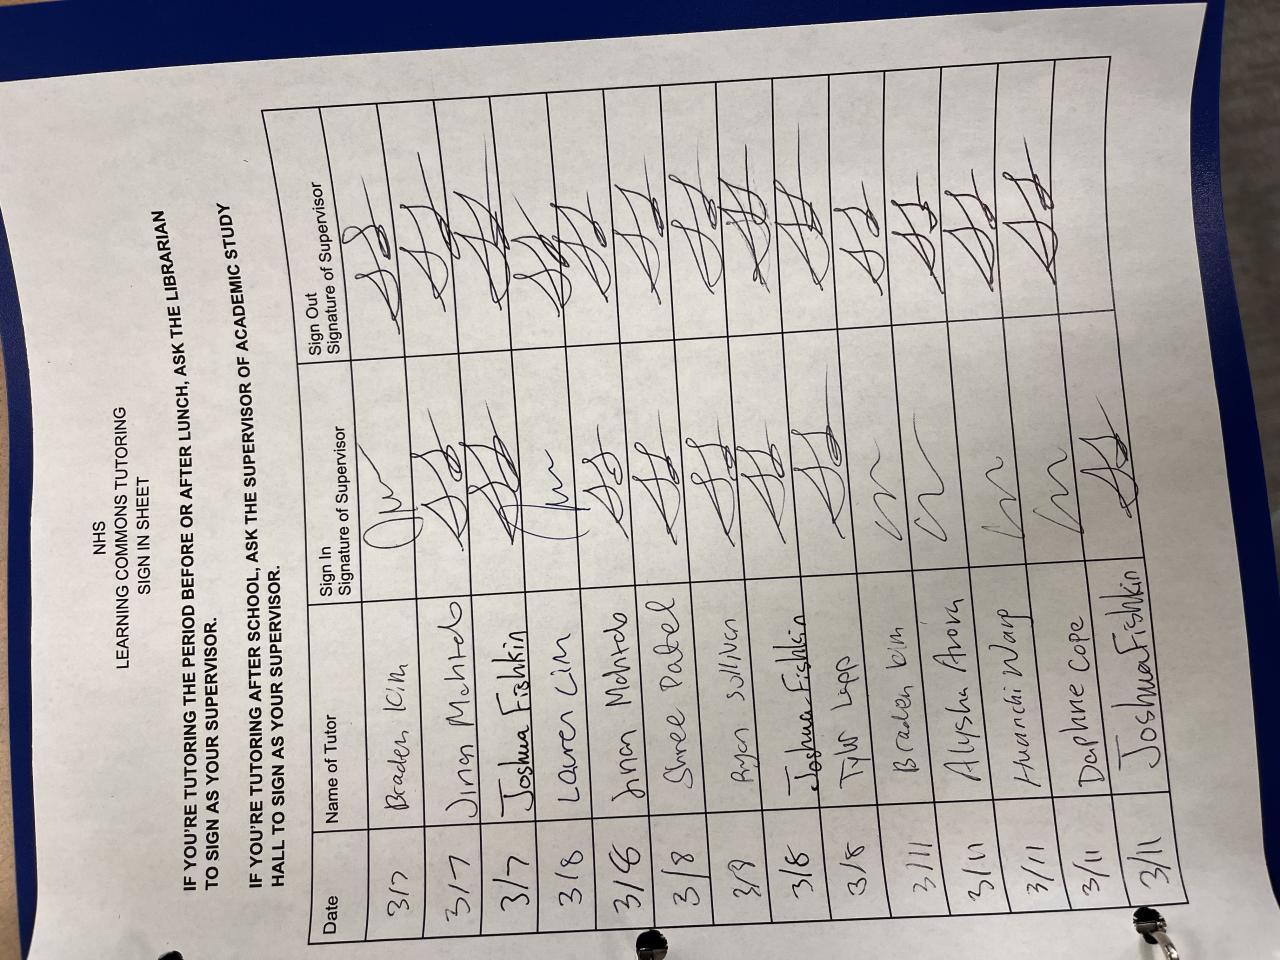 NHS
LEARNING COMMONS TUTORING
SIGN IN SHEET
IF YOU'RE TUTORING THE PERIOD BEFORE OR AFTER LUNCH, ASK THE LIBRARIAN
TO SIGN AS YOUR SUPERVISOR.
IF YOU'RE TUTORING AFTER SCHOOL, ASK THE SUPERVISOR OF ACADEMIC STUDY
HALL TO SIGN AS YOUR SUPERVISOR.
Date Name of Tutor Sign In Signature of Supervisor Sign Out Signature of Supervisor
3/7 Braden Kim
3/7 Jinan Mahtdo
3/7 Joshua Fishkin
3/8 Lauren Lim
3/8 Jinan Mahtdo
3/8 Shree Patel
3/8 Ryan Sullivan
3/8 Joshua Fishkin
3/8 Tyler Lapp
3/11 Braden Kim
3/11 Alysha Arora
3/11 Huanchi Wang
3/11 Daphne Cope
3/11 Joshua Fishkin